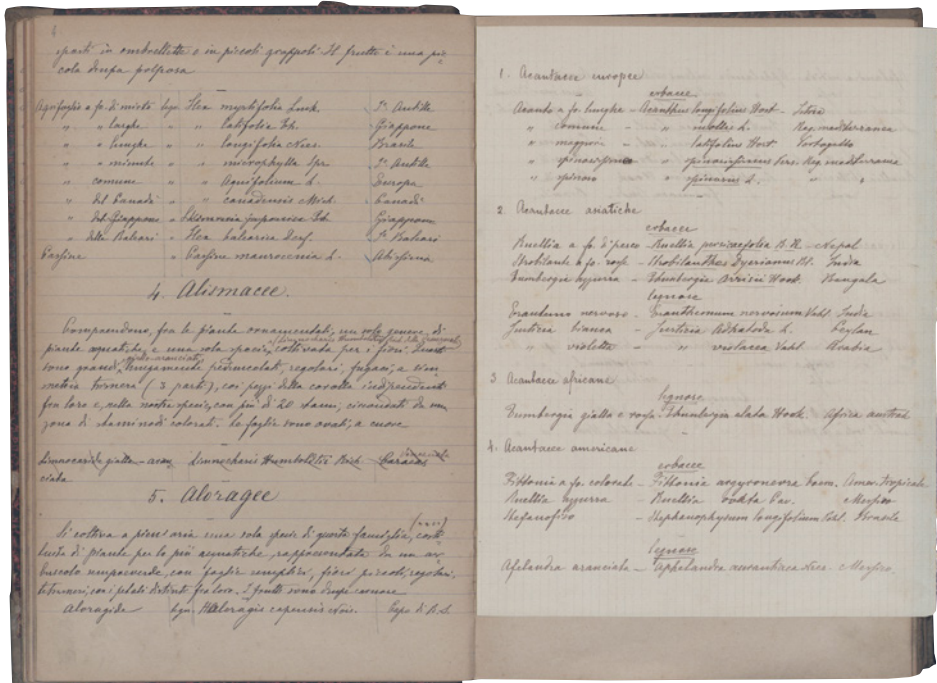 sparti in ombrellette e in piccoli grappoli. Il frutto è una pic-
cola drupa polposa
Aquifoglio a fo. di mirto legn. Ilex myrtifolia Lamk. Is. Antille
„ „ larghe „ „ latifolia Th. Giappone
„ „ lunghe „ „ longifolia Nees. Brasile
„ „ minute „ „ microphylla Spr. Is. Antille
„ comune „ „ Aquifolium L. Europa
„ del Canadà „ „ canadensis Mich. Canadà
„ del Giappone „ Skimmia japonica Th. Giappone
„ delle Baleari „ Ilex balearica Desf. Is. Baleari
Cassine „ Cassine maurocenia L. Abissinia
4. Alismacee.
Comprendono, fra le piante ornamentali, un solo genere di
(Limnocharis Humboldtii
piante aquatiche e una sola specie, coltivata per i fiori. Questi
giallo-aranciati
sono grandi, lungamente peduncolati, regolari, fugaci, a sim-
metria ternera (3 parti), coi pezzi della corolla indipendenti
fra loro e, nella nostra specie, con più di 20 stami, circondati da una
zona di staminodi colorati. Le foglie sono ovali, a cuore
Limnocaride gialla - acqu. Limnocharis Humboldtii Rich. Caracas
5. Aloragee
Si coltiva a pien'aria una sola specie di questa famiglia, costi-
tuita di piante per lo più aquatiche, rappresentata da un ar-
buscello sempreverde, con foglie semplici, fiori piccoli, regolari,
tetrameri, con i petali distinti fra loro. I frutti sono drupe carnose
Aloragide legn. Haloragis capensis Capo di B. S.
1. Acantacee europee
erbacee
Acanto a fo. lunghe - Acanthus longifolius Host - Istria
„ comune - „ mollis L. Reg. mediterranea
„ maggiore - „ latifolius Hort. Portogallo
„ spinosissimo „ spinosissimus Pers. Reg. mediterranea
„ spinoso „ spinosus L. „ „
2. Acantacee asiatiche
erbacee
Ruellia a fo. di pesco - Ruellia persicaefolia - Nepal
Strobilante a fo. rosse - Strobilanthes Dyerianus India
Tumbergia azzurra - Thunbergia Hook. Bengala
legnose
Erantemo nervoso - Eranthemum nervosum Vahl. India
Justicia bianca - Justicia Adhatoda L. Ceylan
„ violetta - „ violacea Vahl. Arabia
3. Acantacee africane
legnose
Tumbergia gialla e rossa - Thunbergia alata Hook. Africa austral.
4. Acantacee americane
erbacee
Fittonia a fo. colorate - Fittonia argyroneura Amer. tropicale
Ruellia azzurra - Ruellia ovata Cav. Messico
Stefanofiso - Stephanophysum longifolium Pohl. Brasile
legnose
Afelandra aranciata - Aphelandra aurantiaca Nees. Messico.